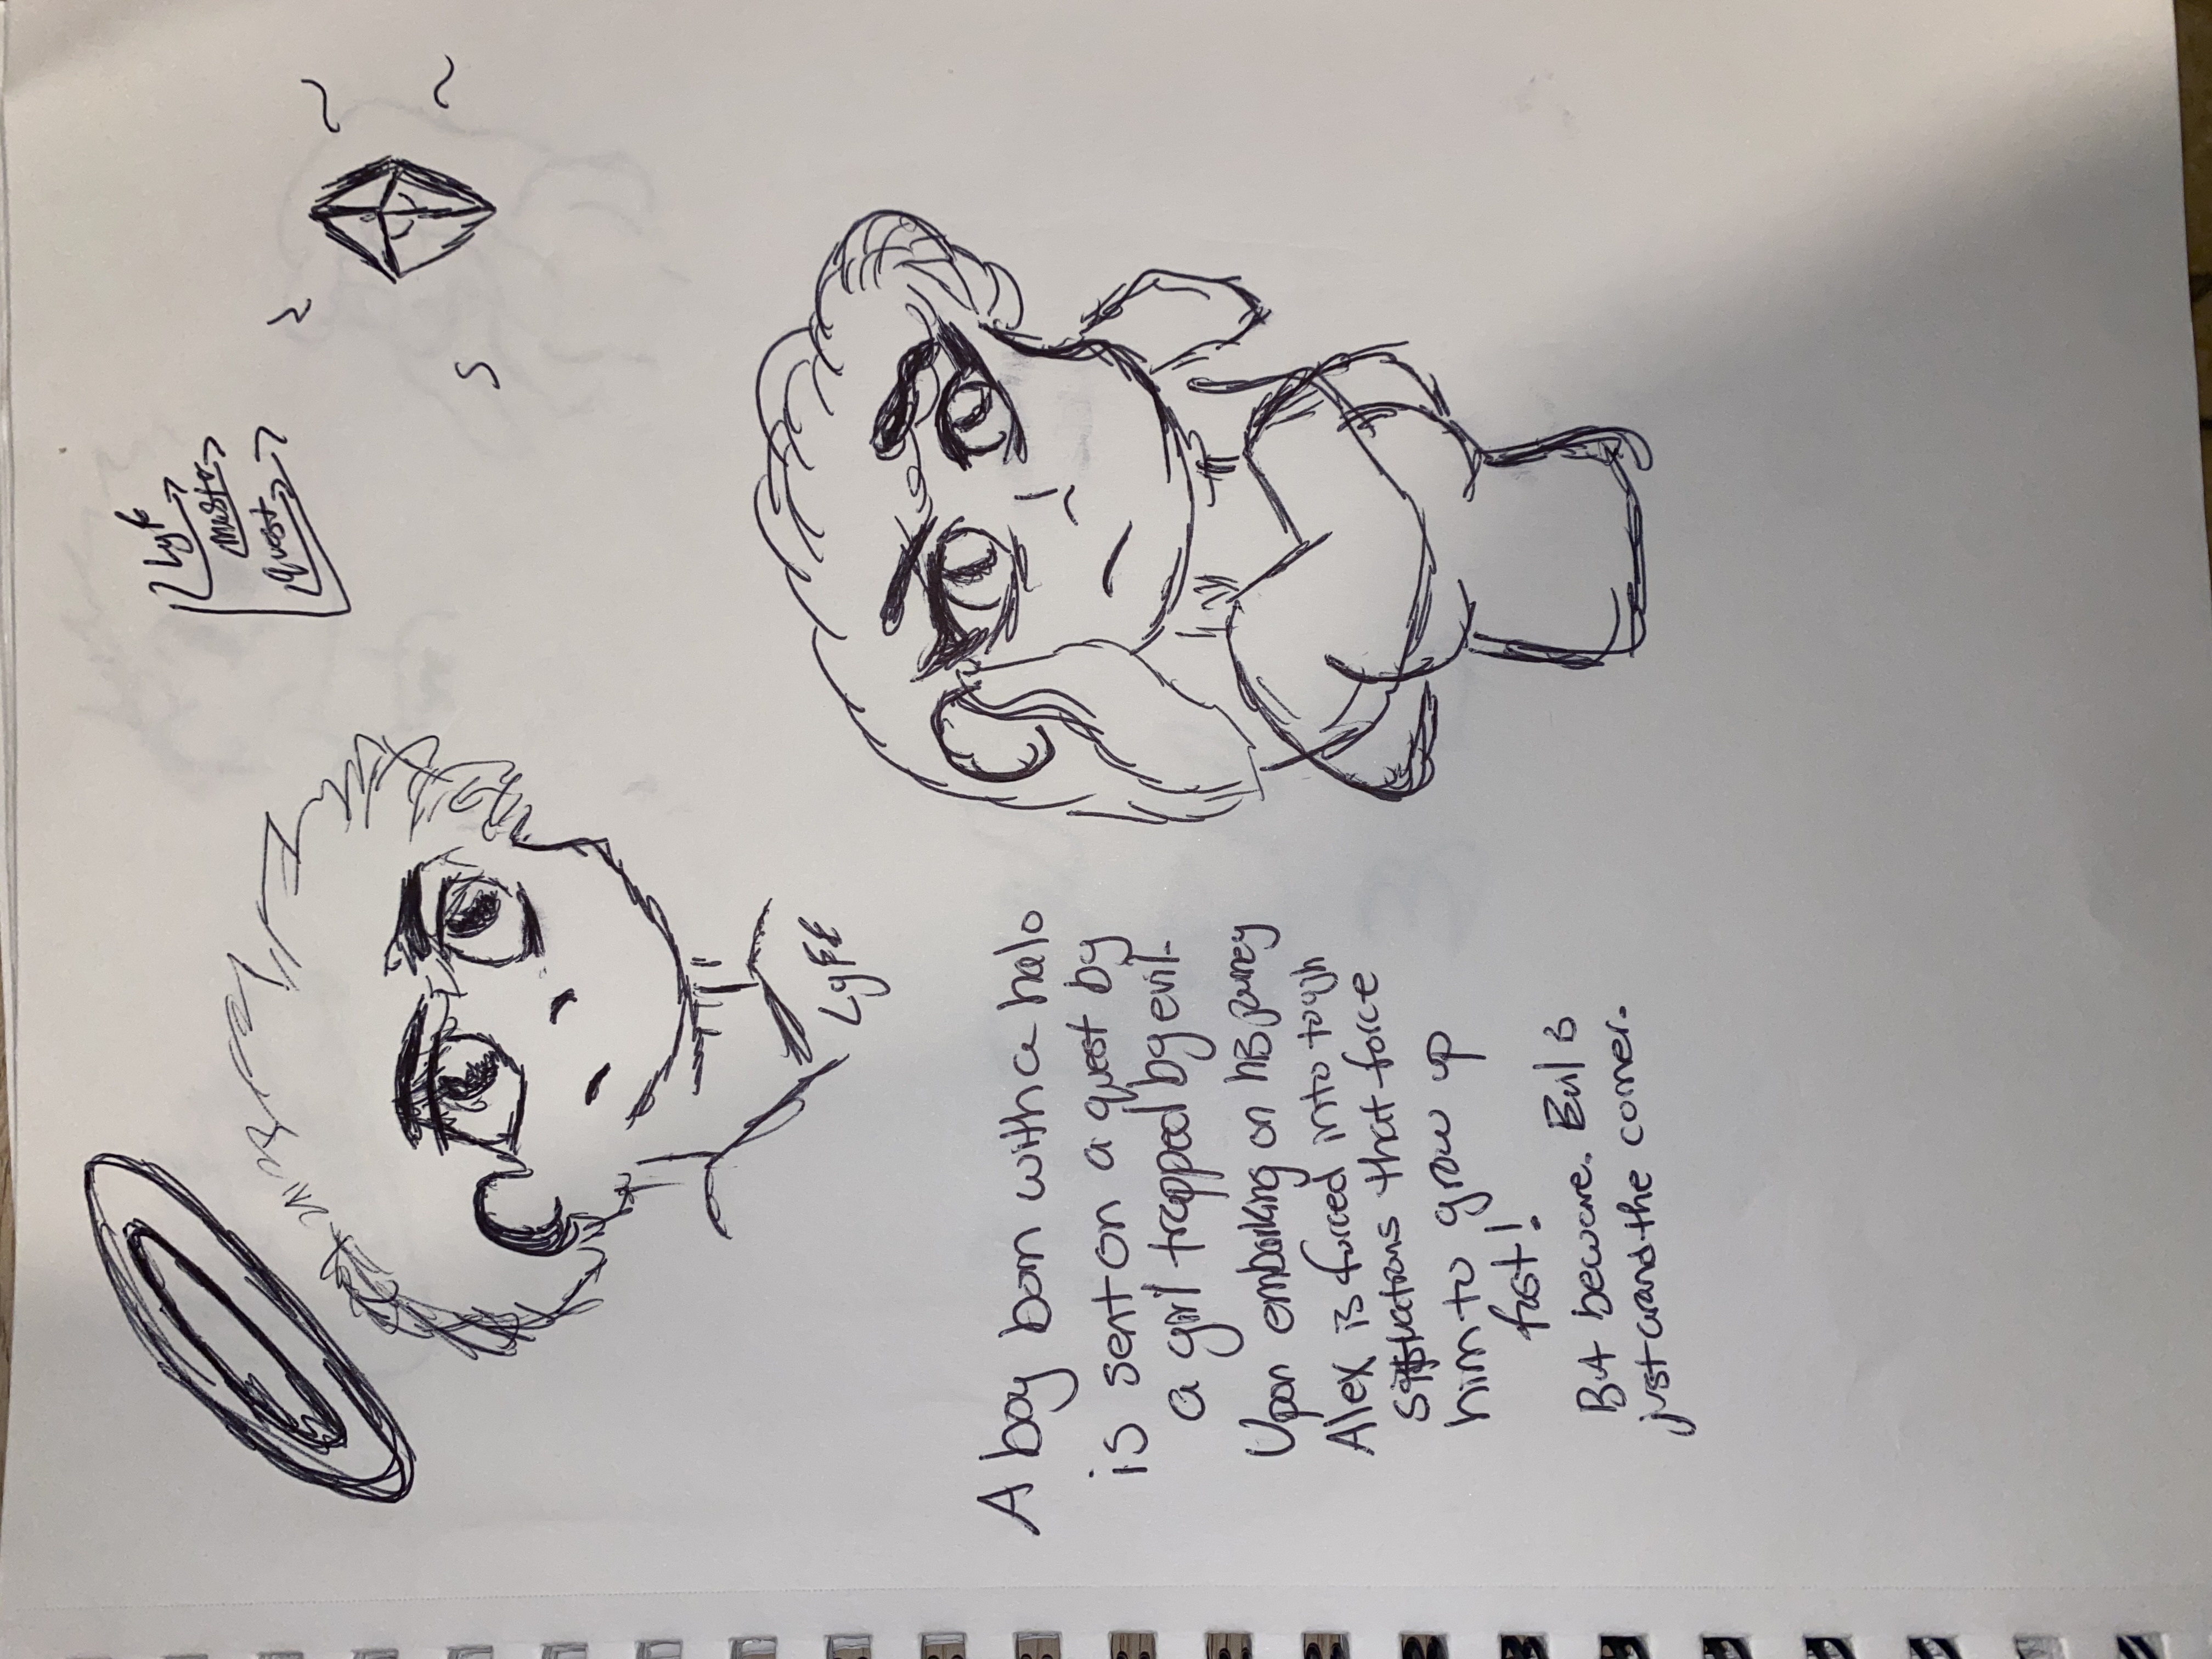 Lyfe
Master
quest
Lyfe
A boy born with a halo
is sent on a quest by
a girl trapped by evil.
Upon embarking on his journey
Alex is forced into tough
situations that force
him to grow up
fast!
But beware. Evil is
just around the corner.